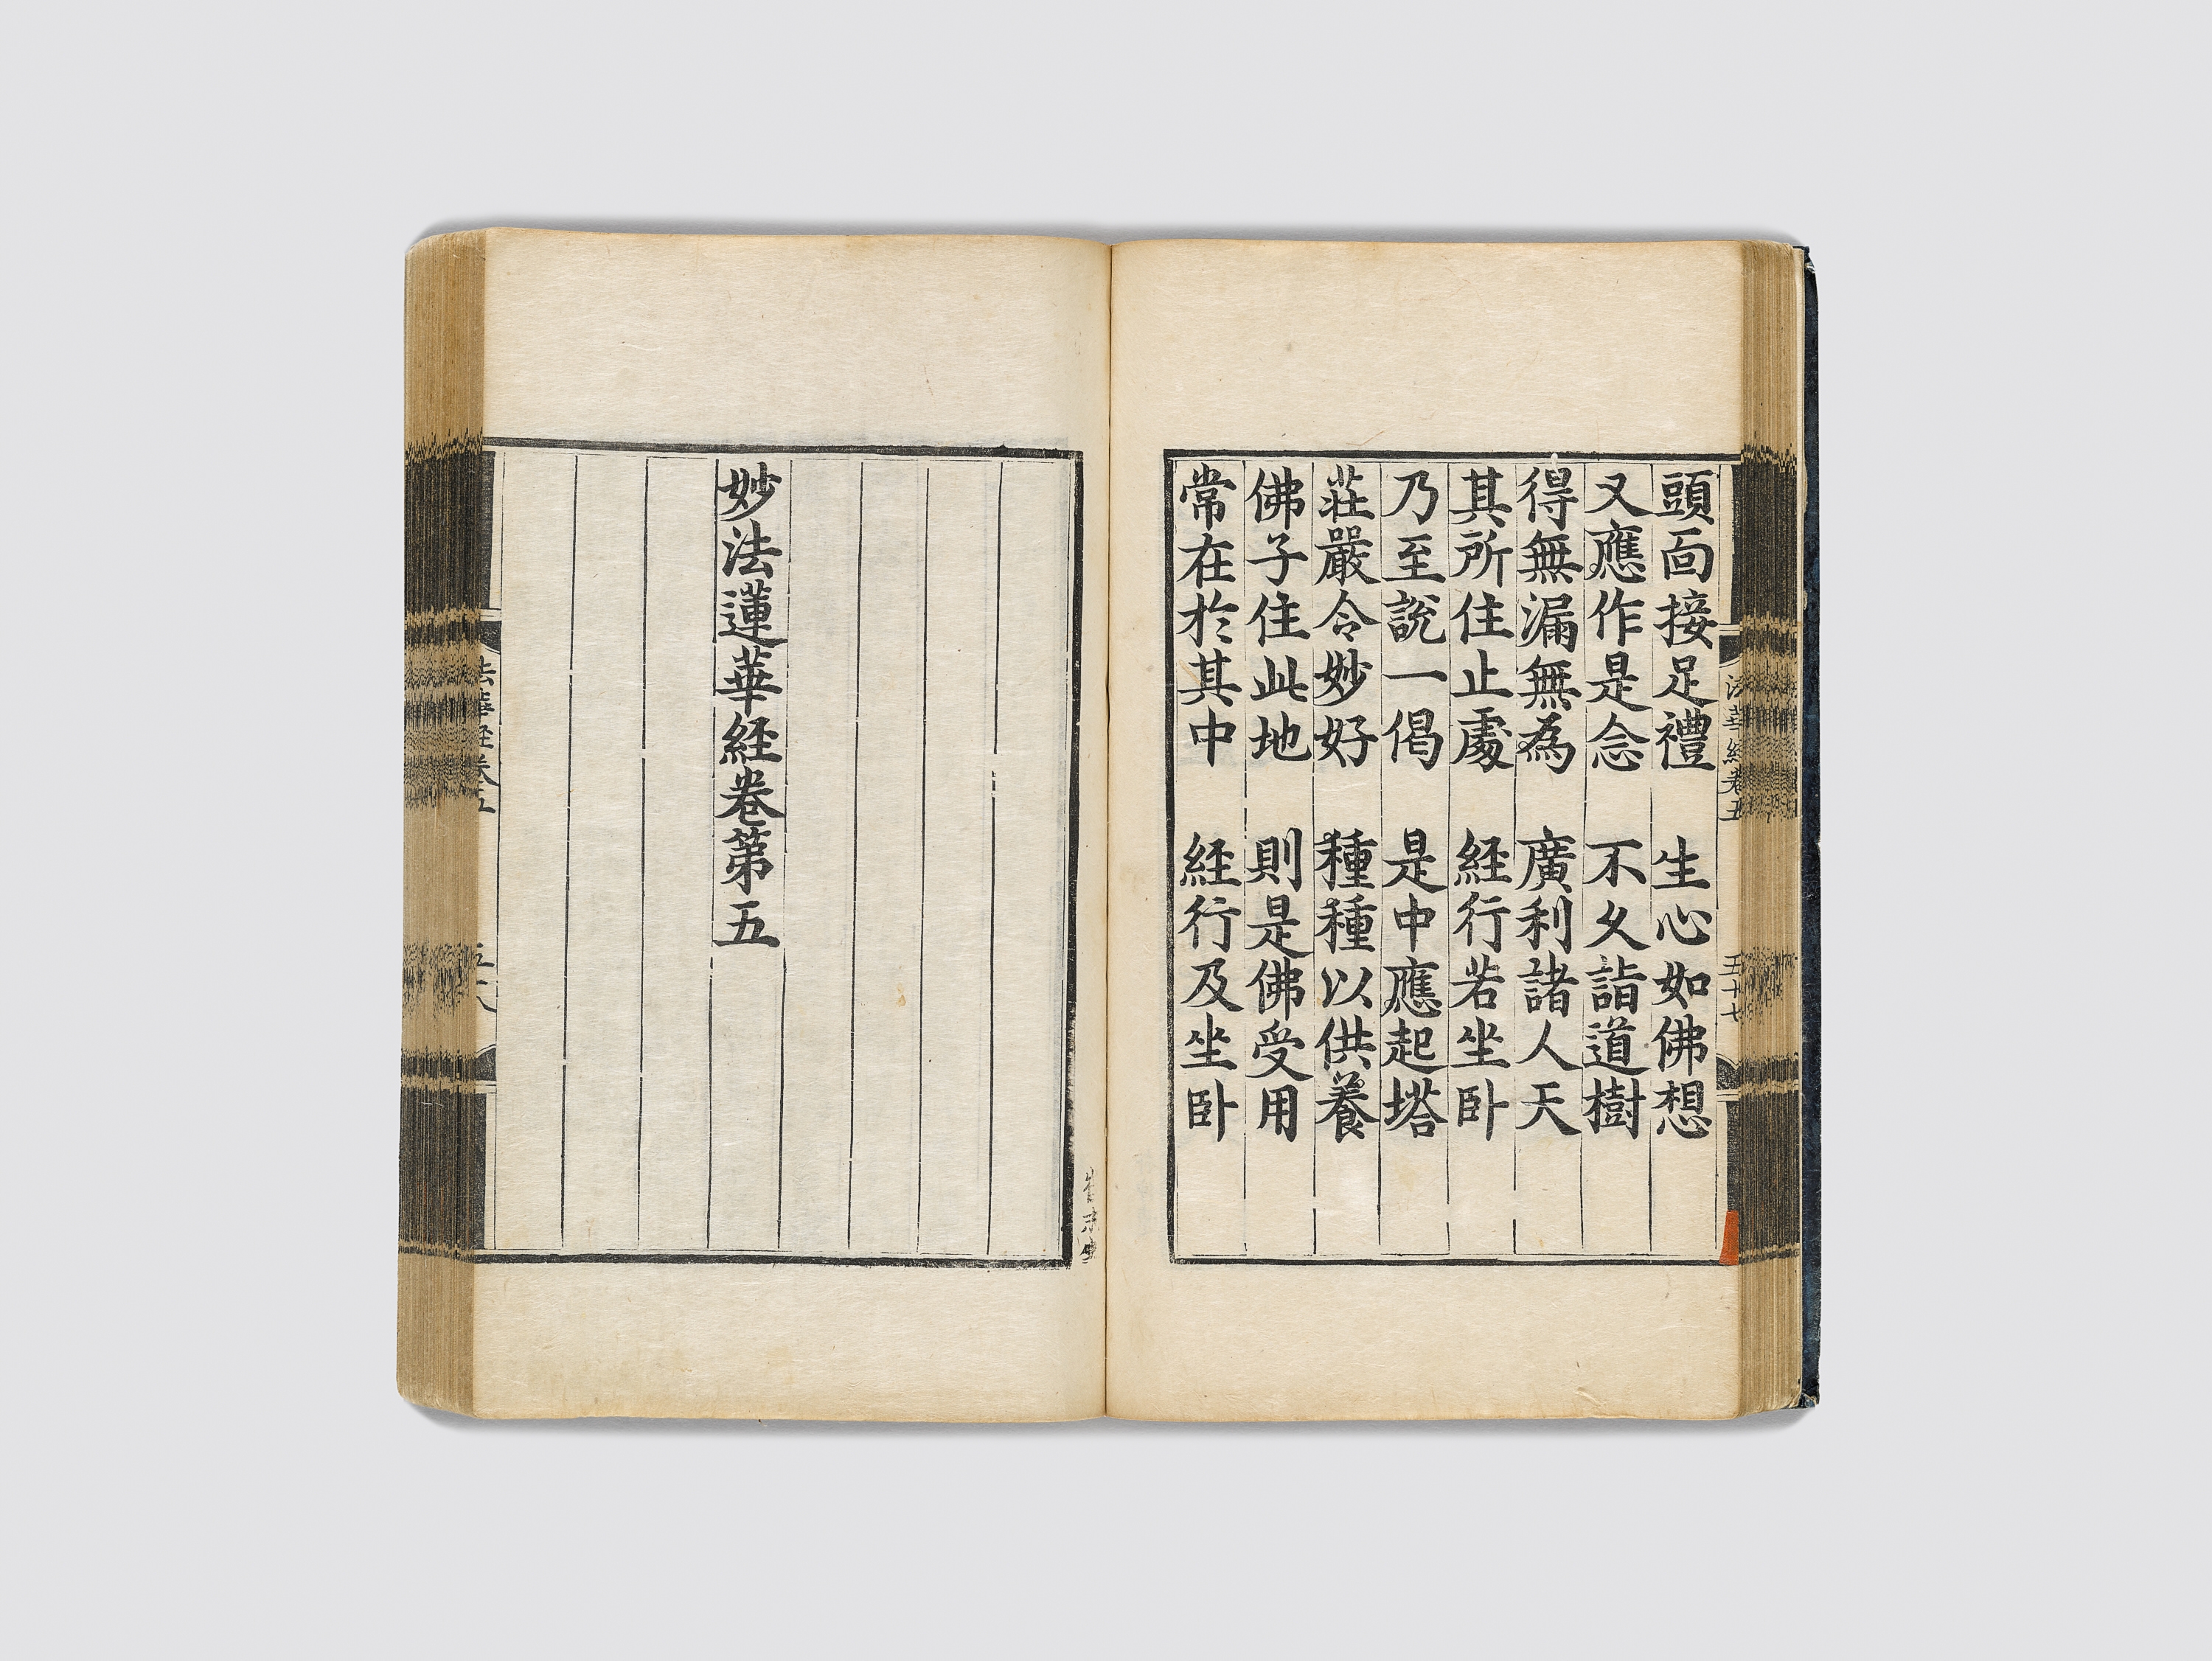 頭面接足禮 生心如佛想
又應作是念 不久詣道樹
得無漏無為 廣利諸人天
其所住止處 經行若坐卧
乃至說一偈 是中應起塔
莊嚴令妙好 種種以供養
佛子住此地 則是佛受用
常在於其中 經行及坐卧
法華經卷五
五十七
妙法蓮華經卷第五
法華經卷五
五十八